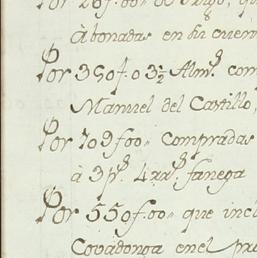 Por 26f.00" de Trigo, qu
abonadas en su cuen
Por 350f.03½ Alm.s com
Manuel del Castillo,
Por 709f00" compradas
à 3p.s 4rr.s fanega
Por 550f.00" que inc
Covadonga en el pre